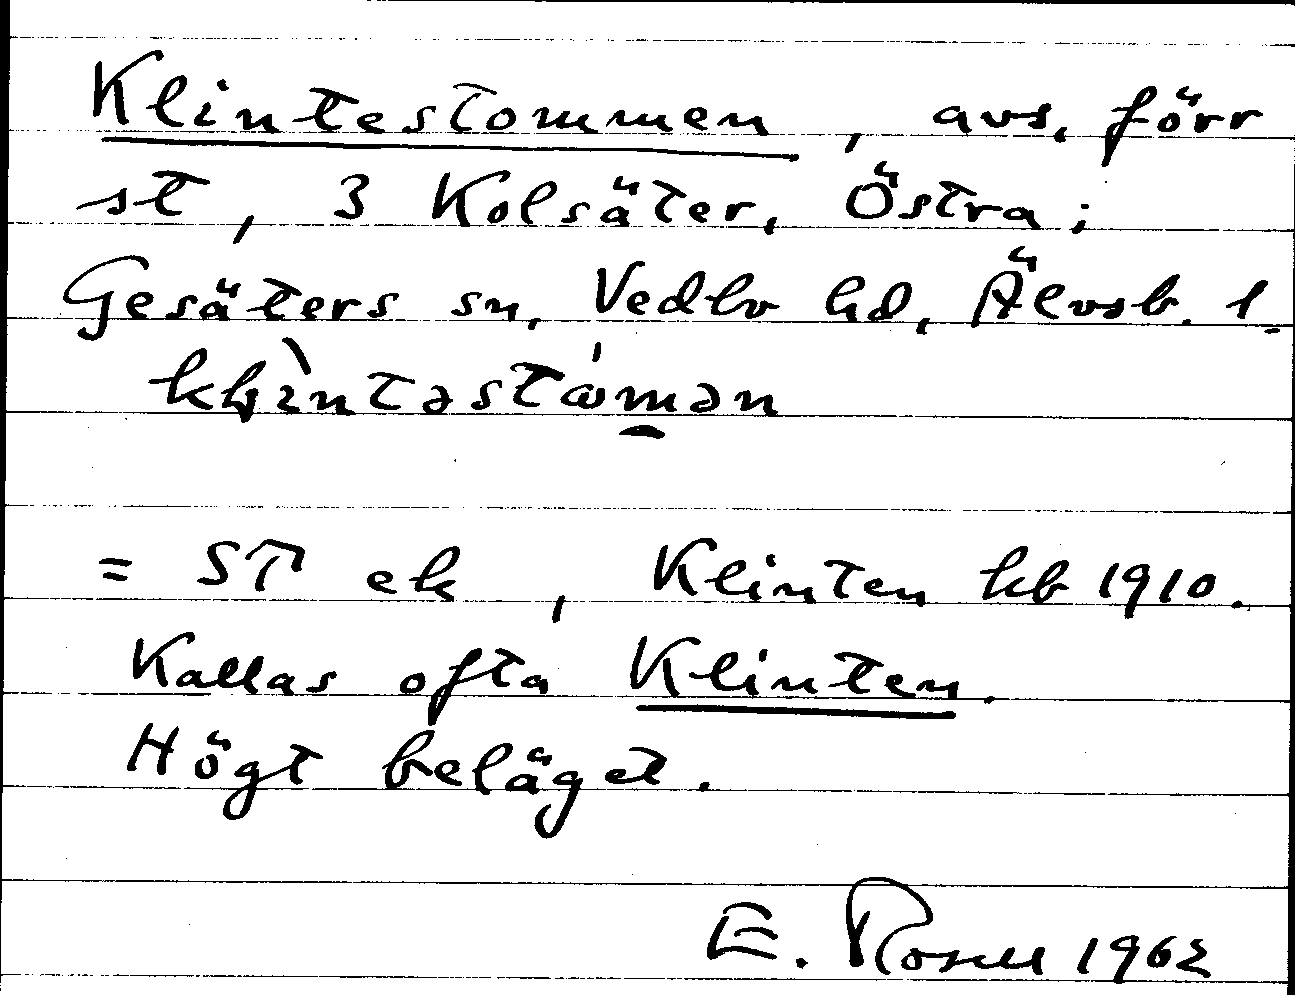 Klintestommen, avs. förr
st, 3 Kolsäter, Östra;
Gesäters sn, Vedbo hd, Älvsb. l.
= ST ek, Klinten kb 1910.
Kallas ofta Klinten.
Högt beläget.
E. Rosell 1962